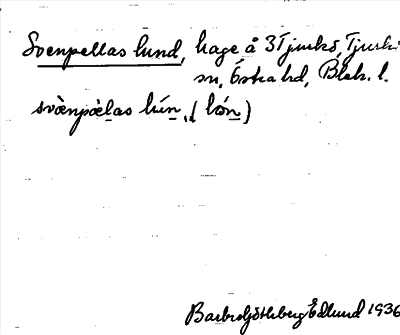 Svenpellas lund, hage å 3 Tjurkö, Tjurkö
sn, Östra hd, Blek. l.
svæ̀npæ̀las lún, (lón)
Barbro Göthberg Edlund 1936